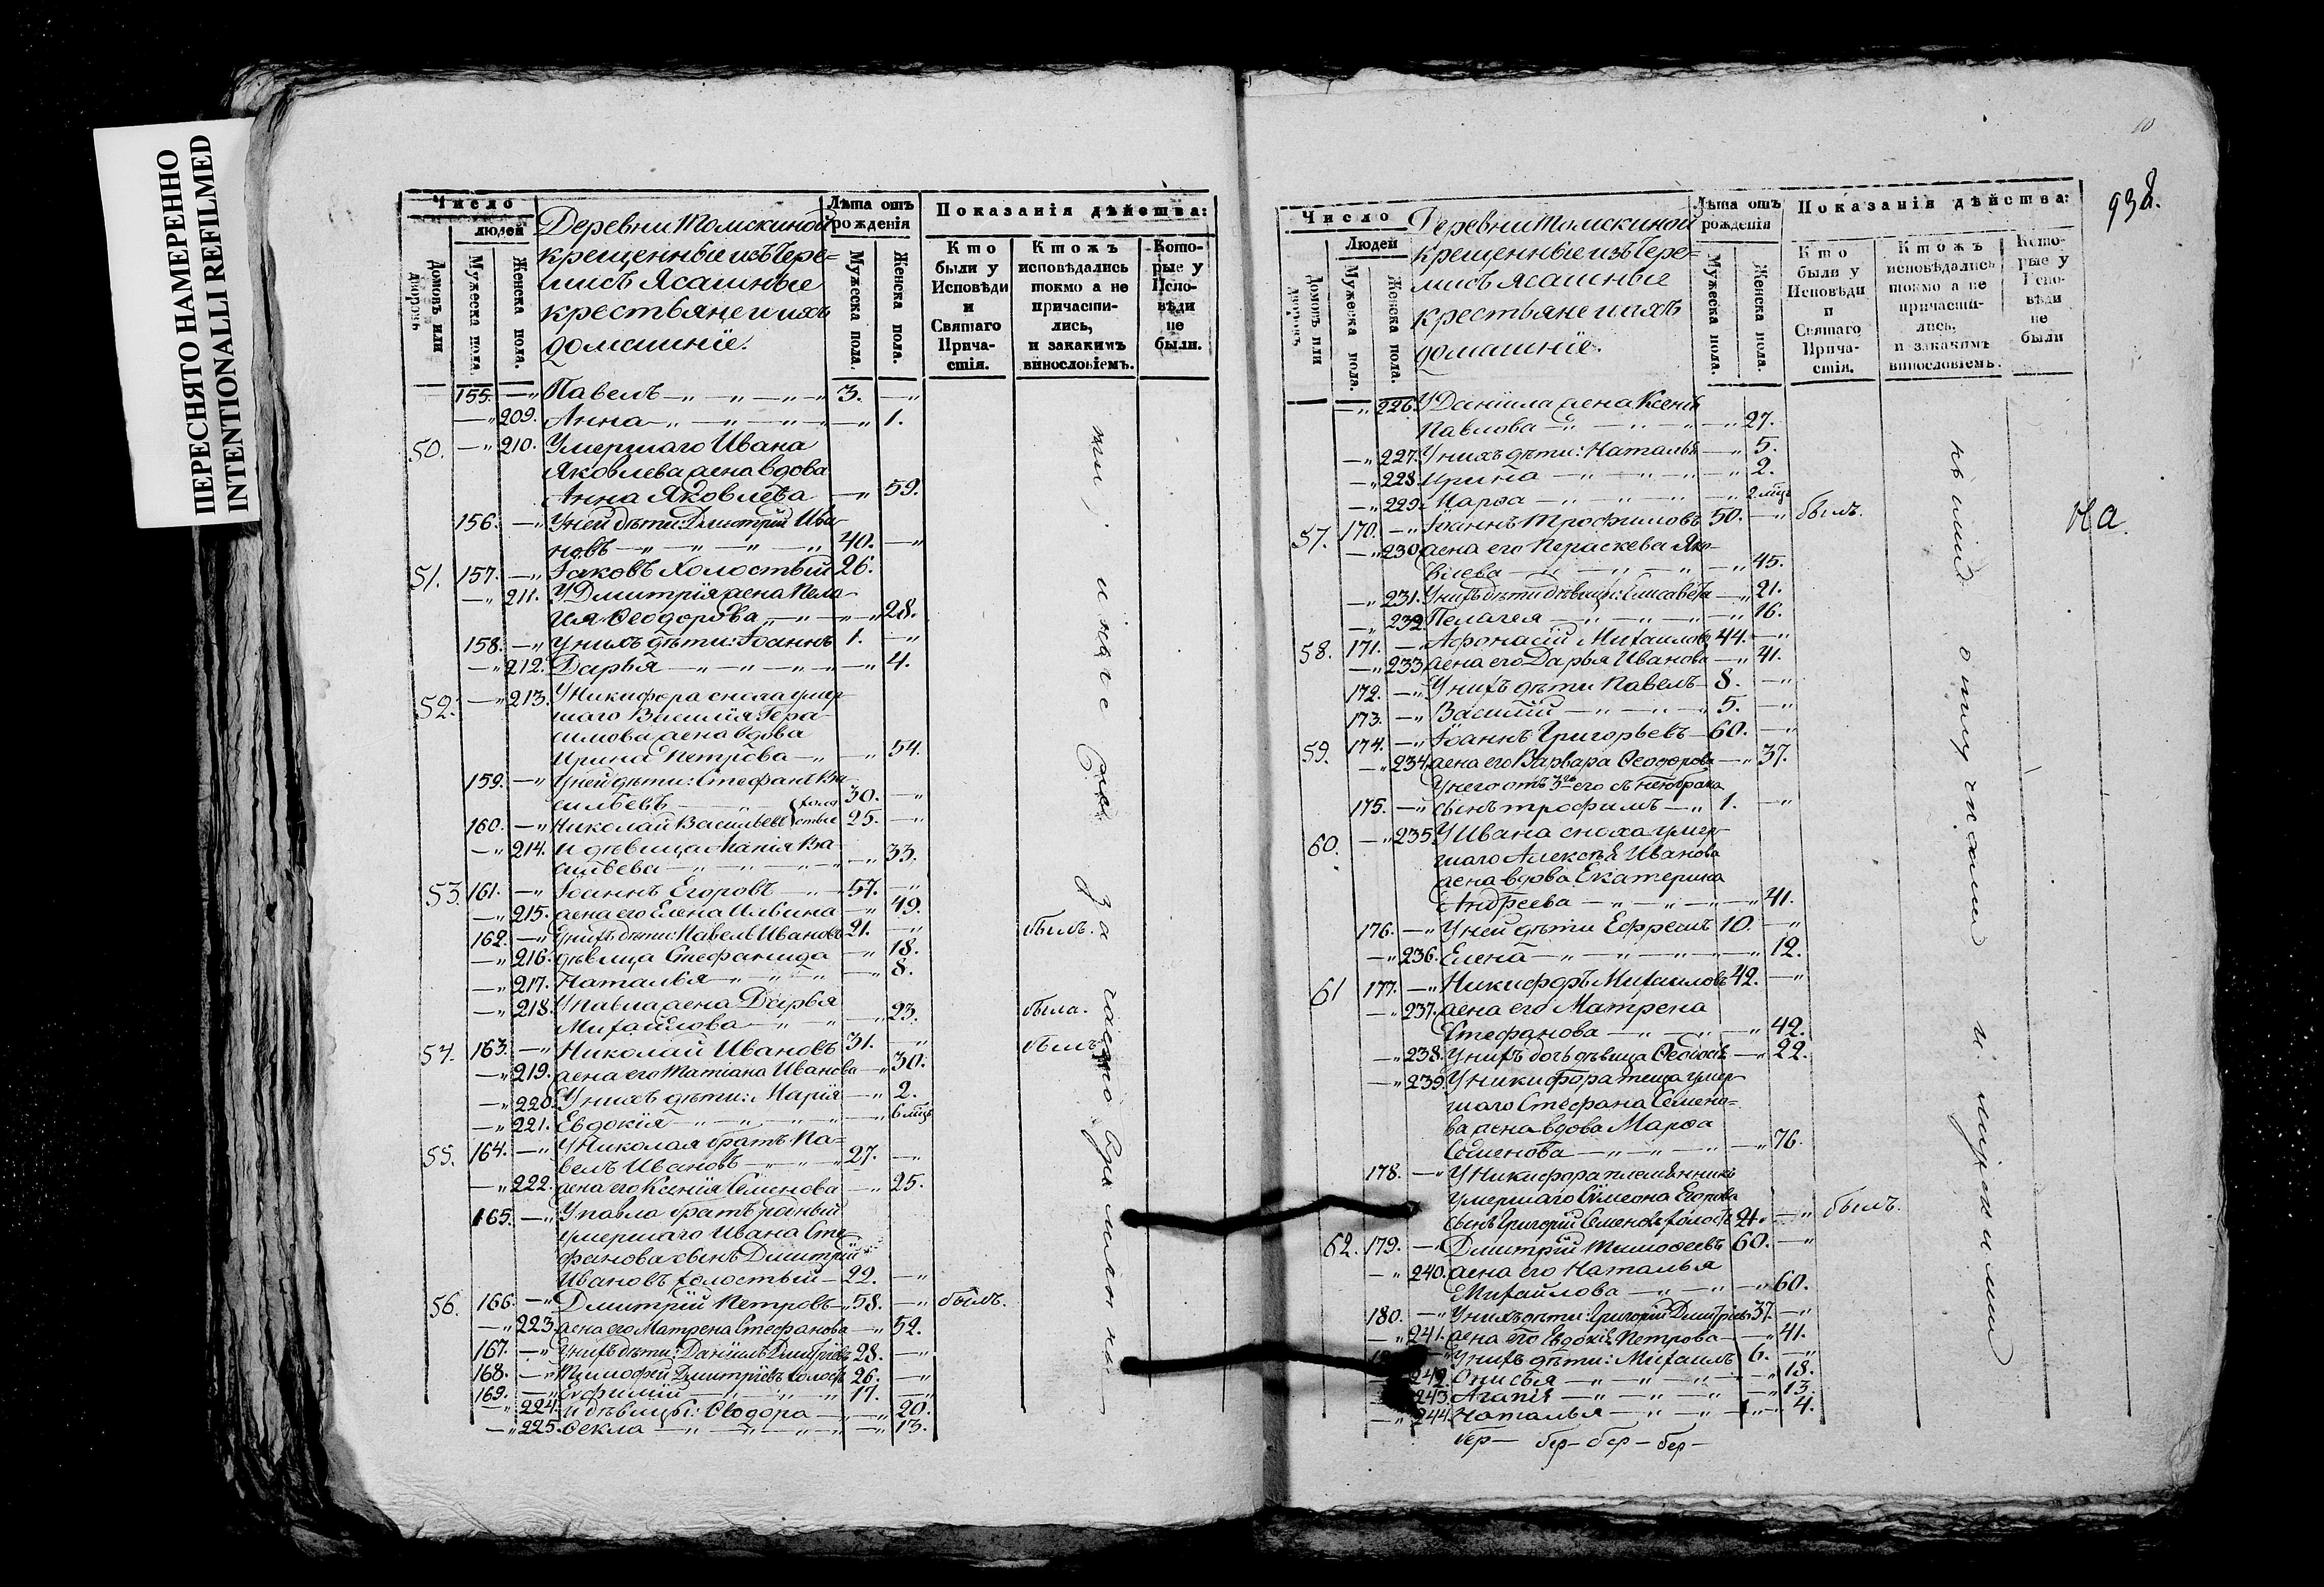 ПЕРЕСНЯТО НАМЕРЕННО
INTENTIONALLI REFILMED
Число
людей
Домовъ или дворовъ
Мужеска пола.
Женска пола.
Деревни Томскиной
крещенные изъ Чере=
мисъ Ясашные
крестьяне и ихъ
домашніе.
Лѣта отъ рожденія
Мужеска пола.
Женска пола.
Показанія дѣйства:
Кто были у Исповѣди и Святаго Причастія.
Ктожъ исповѣдались токмо а не причастились, и закакимъ винословіемъ.
Которые у Исповѣди не были.
155. —„ Павелъ —„ —„ —„ 3. —„
—„ 209. Анна —„ —„ —„ —„ 1.
50. —„ 210. Умершаго Ивана
Яковлева жена вдова
Анна Яковлева —„ 59.
156. —„ У ней дѣти: Дмитрій Ива-
новъ —„ —„ —„ —„ 40. —„
51. 157. —„ Іаковъ холостый 26.
—„ 211. У Дмитрія жена Пела-
гея Ѳеодорова —„ —„ 28.
158. —„ У нихъ дѣти: Іоаннъ 1. —„
—„ 212. Дарья —„ —„ —„ —„ 4.
52. —„ 213. У Никифора сноха умер-
шаго Василія Гера-
симова жена вдова
Ирина Петрова —„ —„ 54.
159. —„ У ней дѣти: Стефанъ Ва-
сильевъ —„ 30. —„
160. —„ Николай Васильевъ холостые 25. —„
—„ 214. и дѣвица Анія Ва-
сильева —„ —„ —„ 33.
53. 161. —„ Іоаннъ Егоровъ —„ 57. —„
—„ 215. жена его Елена Ильина —„ 49.
162. —„ У нихъ дѣти: Павелъ Ивановъ 21. —„ былъ.
—„ 216. дѣвица Стефанида —„ 18.
—„ 217. Наталья —„ —„ —„ 8.
—„ 218. У Павла жена Дарья
Михайлова —„ —„ —„ 23. была.
54. 163. —„ Николай Ивановъ 31. —„ былъ
—„ 219. жена его Татіана Иванова —„ 30.
—„ 220. У нихъ дѣти: Марія —„ 2.
—„ 221. Евдокія —„ —„ —„ —„ 6 мѣц
55. 164. —„ У Николая братъ Па=
велъ Ивановъ —„ —„ 27. —„
—„ 222. жена его Ксенія Семенова —„ 25.
165. —„ У Павла братъ родный
умершаго Ивана Сте-
фанова сынъ Дмитрій
Ивановъ холостый — 22. —„
56. 166. —„ Дмитрій Петровъ —„ 58. —„ былъ.
—„ 223. жена его Матрена Стефанова —„ 52.
167. —„ У нихъ дѣти: Даніилъ Дмитріевъ 28. —„
168. —„ Тимофей Дмитріевъ холостъ 26. —„
169. —„ Евфимій —„ —„ —„ 17. —„
—„ 224. и дѣвицы: Ѳеодора —„ —„ 20.
—„ 225. Ѳекла —„ —„ —„ —„ 13.
10
938.
Число
Людей
Домовъ или дворовъ
Мужеска пола.
Женска пола.
Деревни Томскиной
крещенные изъ Чере=
мисъ Ясашные
крестьяне и ихъ
домашніе.
Лѣта отъ рожденія
Мужеска пола.
Женска пола.
Показанія дѣйства:
Кто были у Исповѣди и Святаго Причастія.
Ктожъ исповѣдались токмо а не причастились, и закакимъ винословіемъ.
Которые у Исповѣди не были
—„ 226. У Даніила жена Ксенія
Павлова —„ —„ —„ —„ 27.
—„ 227. У нихъ дѣти: Наталья —„ 5.
—„ 228. Ирина —„ —„ —„ —„ 2.
—„ 229. Марѳа —„ —„ —„ —„ 2 мѣц
57. 170. —„ Іоаннъ Трофимовъ 50. —„ былъ.
—„ 230. жена его Параскева Яко-
влева —„ —„ —„ —„ 45.
—„ 231. У нихъ дѣти дѣвицы: Елисавета —„ 21.
—„ 232. Пелагея —„ —„ —„ —„ 16.
58. 171. —„ Афонасій Михаиловъ 44. —„
—„ 233. жена его Дарья Иванова —„ 41.
172. —„ У нихъ дѣти Павелъ 8. —„
173. —„ Василій —„ —„ —„ 5. —„
59. 174. —„ Іоаннъ Григорьевъ 60. —„
—„ 234. жена его Варвара Ѳеодорова —„ 37.
У него отъ 3го его съ нею брака
175. —„ сынъ Трофимъ —„ 1. —„
60. —„ 235. У Ивана сноха умер-
шаго Алексѣя Иванова
жена вдова Екатерина
Андреева —„ —„ —„ —„ 41.
176. —„ У ней дѣти Ефремъ 10. —„
—„ 236. Елена —„ —„ —„ —„ 12.
61 177. —„ Никифоръ Михаиловъ 42. —„
—„ 237. жена его Матрена
Стефанова —„ —„ —„ 42.
—„ 238. У нихъ дочь дѣвица Ѳеодосія —„ 22.
—„ 239. У Никифора теща умер-
шаго Стефана Семено=
ва жена вдова Марѳа
Семенова —„ —„ —„ 76.
178. —„ У Никифора племянникъ
умершаго Симеона Егорова
сынъ Григорій Семеновъ холостъ 21. —„ былъ.
62. 179. —„ Дмитрій Тимоѳеевъ 60. —„
—„ 240. жена его Наталья
Михайлова —„ —„ 60.
180. —„ У нихъ дѣти: Григорій Дмитріевъ 37. —„
—„ 241. жена его Евдокія Петрова —„ 41.
—„ У нихъ дѣти: Михаилъ 6. —„
242. Онисья —„ —„ —„ —„ 18.
243. Агапія —„ —„ —„ —„ 13.
—„ 244. Наталья —„ —„ —„ 4.
бер— бер— бер— бер—
На.